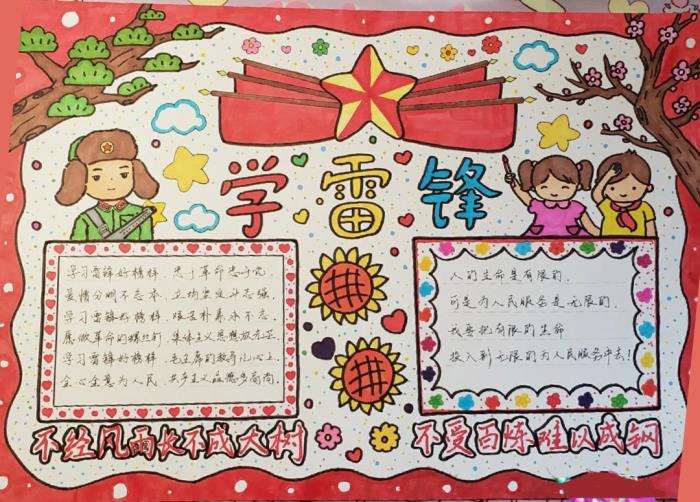 学雷锋
学习雷锋好榜样 忠于革命忠于党
爱憎分明不忘本 立场坚定斗志强
学习雷锋好榜样 艰苦朴素永不忘
愿做革命的螺丝钉 集体主义思想放光芒
学习雷锋好榜样 毛主席的教导记心上
全心全意为人民 共产主义品德多高尚
人的生命是有限的，
可是为人民服务是无限的
我要把有限的生命
投入到无限的为人民服务中去！
不经风雨长不成大树
不受百炼难以成钢